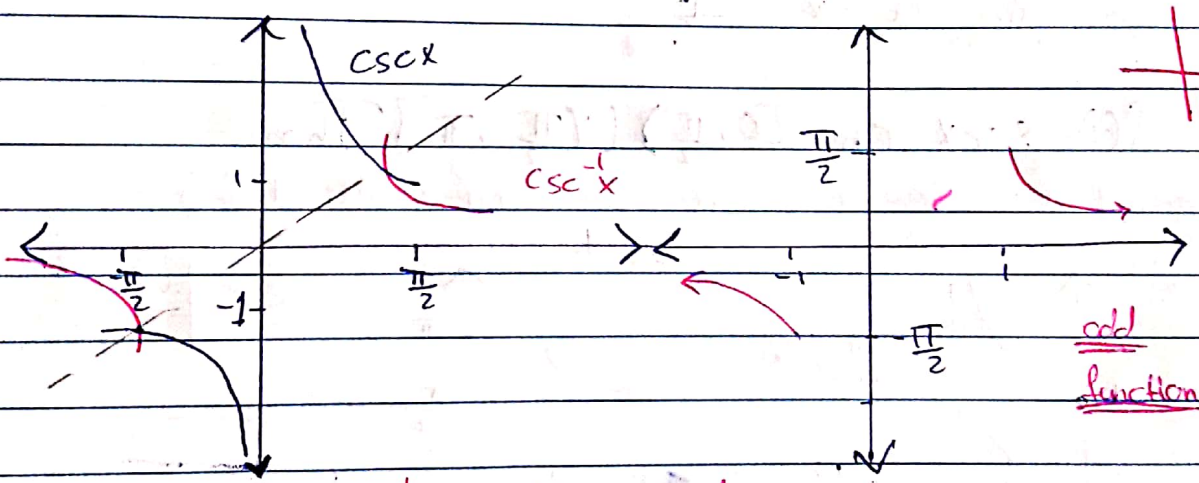 csc x
π/2
1
csc⁻¹x
-π/2
π/2
-1
1
-1
-π/2
odd
function